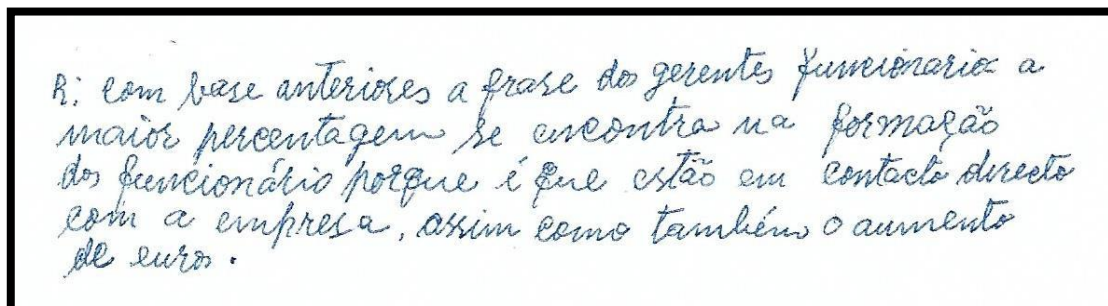 R: com base anteriores a frase dos gerentes funcionarios a
maior percentagem se encontra na formação
dos funcionário porque é que estão em contacto directo
com a empresa, assim como também o aumento
de euros.